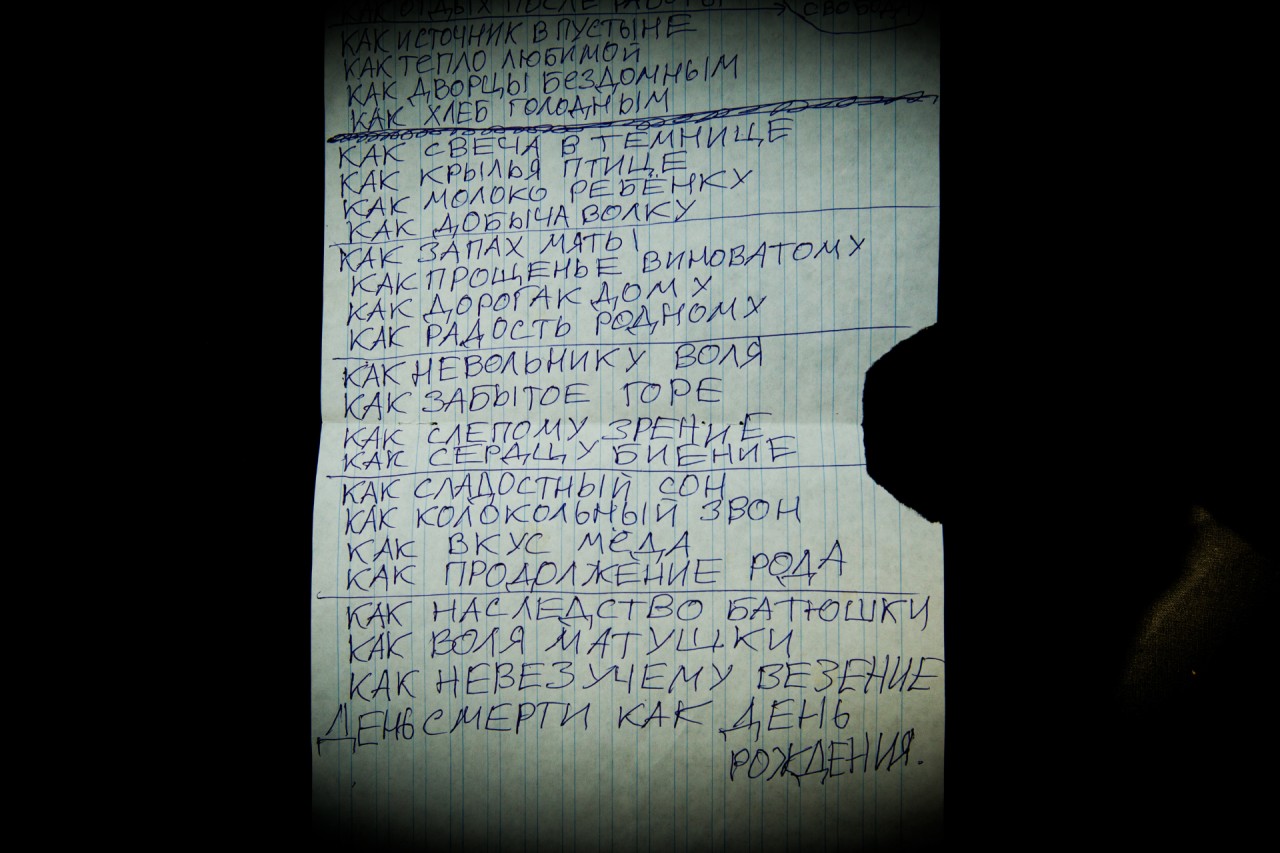 КАК ОТДЫХ ПОСЛЕ РАБОТЫ СВОБОДА
КАК ИСТОЧНИК В ПУСТЫНЕ
КАК ТЕПЛО ЛЮБИМОЙ
КАК ДВОРЦЫ БЕЗДОМНЫМ
КАК ХЛЕБ ГОЛОДНЫМ
КАК СВЕЧА В ТЕМНИЦЕ
КАК КРЫЛЬЯ ПТИЦЕ
КАК МОЛОКО РЕБЁНКУ
КАК ДОБЫЧА ВОЛКУ
КАК ЗАПАХ МЯТЫ
КАК ПРОЩЕНЬЕ ВИНОВАТОМУ
КАК ДОРОГА К ДОМУ
КАК РАДОСТЬ РОДНОМУ
КАК НЕВОЛЬНИКУ ВОЛЯ
КАК ЗАБЫТОЕ ГОРЕ
КАК СЛЕПОМУ ЗРЕНИЕ
КАК СЕРДЦУ БИЕНИЕ
КАК СЛАДОСТНЫЙ СОН
КАК КОЛОКОЛЬНЫЙ ЗВОН
КАК ВКУС МЁДА
КАК ПРОДОЛЖЕНИЕ РОДА
КАК НАСЛЕДСТВО БАТЮШКИ
КАК ВОЛЯ МАТУШКИ
КАК НЕВЕЗУЧЕМУ ВЕЗЕНИЕ
ДЕНЬ СМЕРТИ КАК ДЕНЬ
РОЖДЕНИЯ.